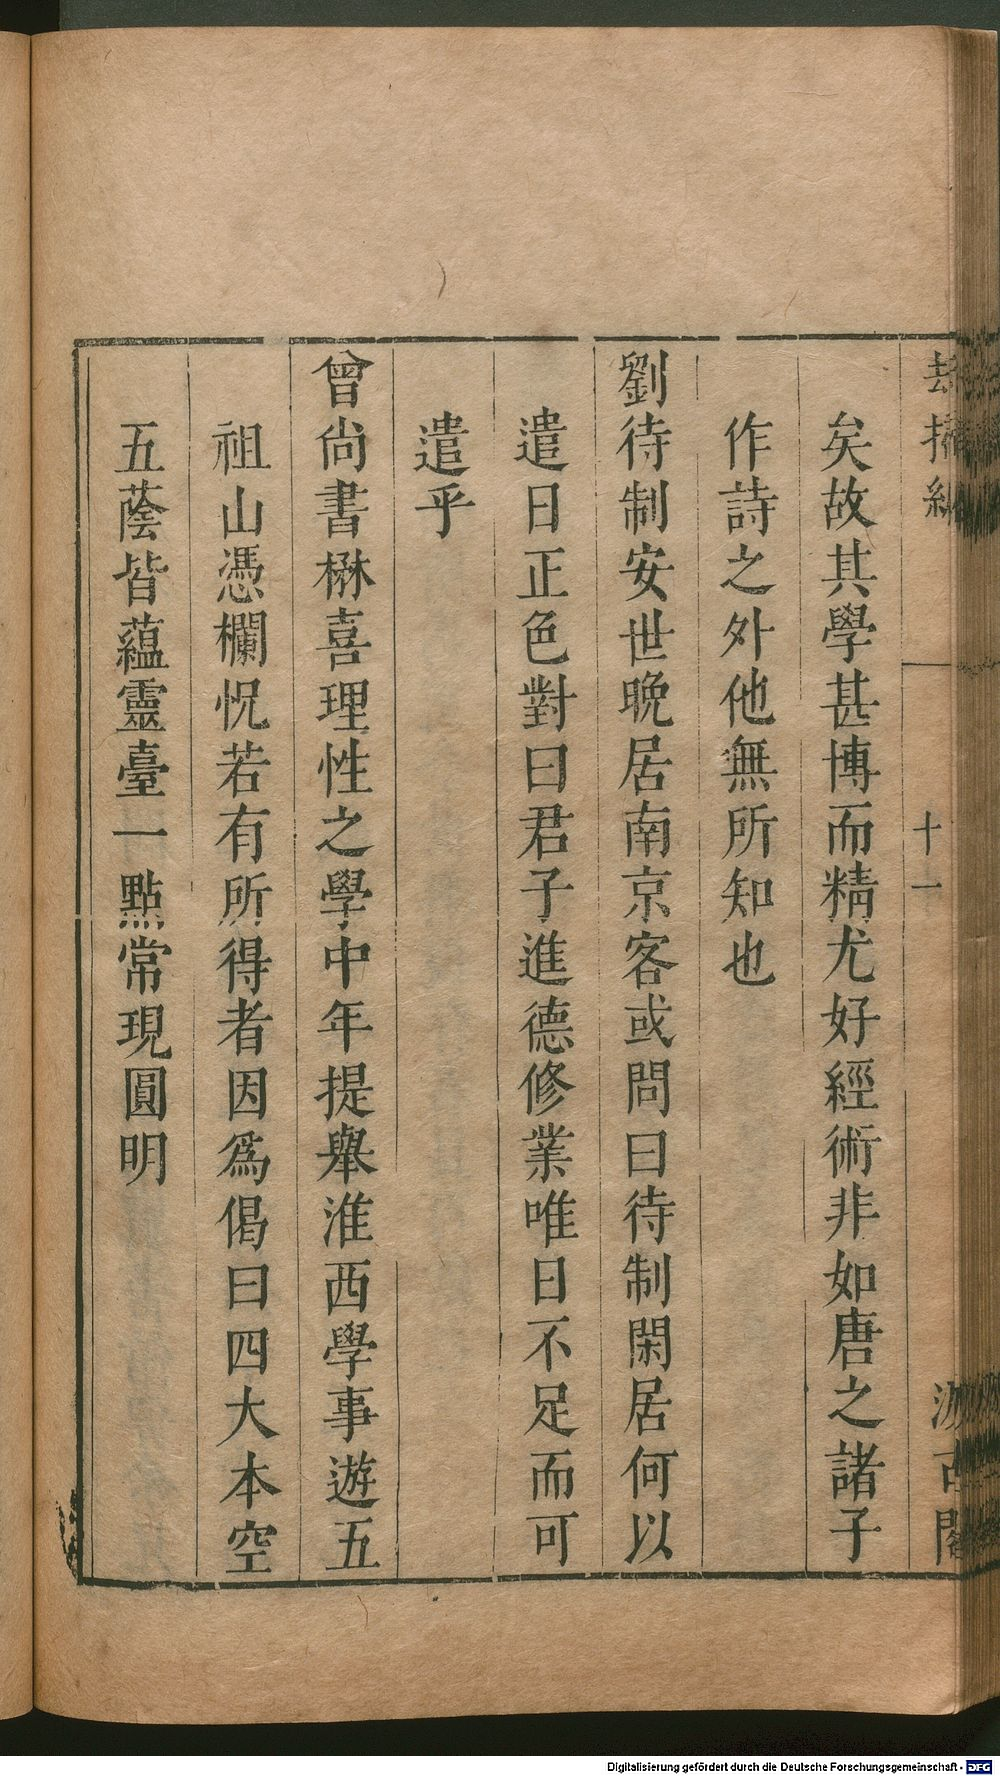 却掃編
十一
汲古閣
矣故其學甚博而精尤好經術非如唐之諸子
作詩之外他無所知也
劉待制安世晚居南京客或問曰待制閑居何以
遣日正色對曰君子進德修業唯日不足而可
遣乎
曾尚書楙喜理性之學中年提舉淮西學事遊五
祖山憑欄怳若有所得者因爲偈曰四大本空
五蔭皆蘊靈臺一點常現圓明
Digitalisierung gefördert durch die Deutsche Forschungsgemeinschaft - DFG